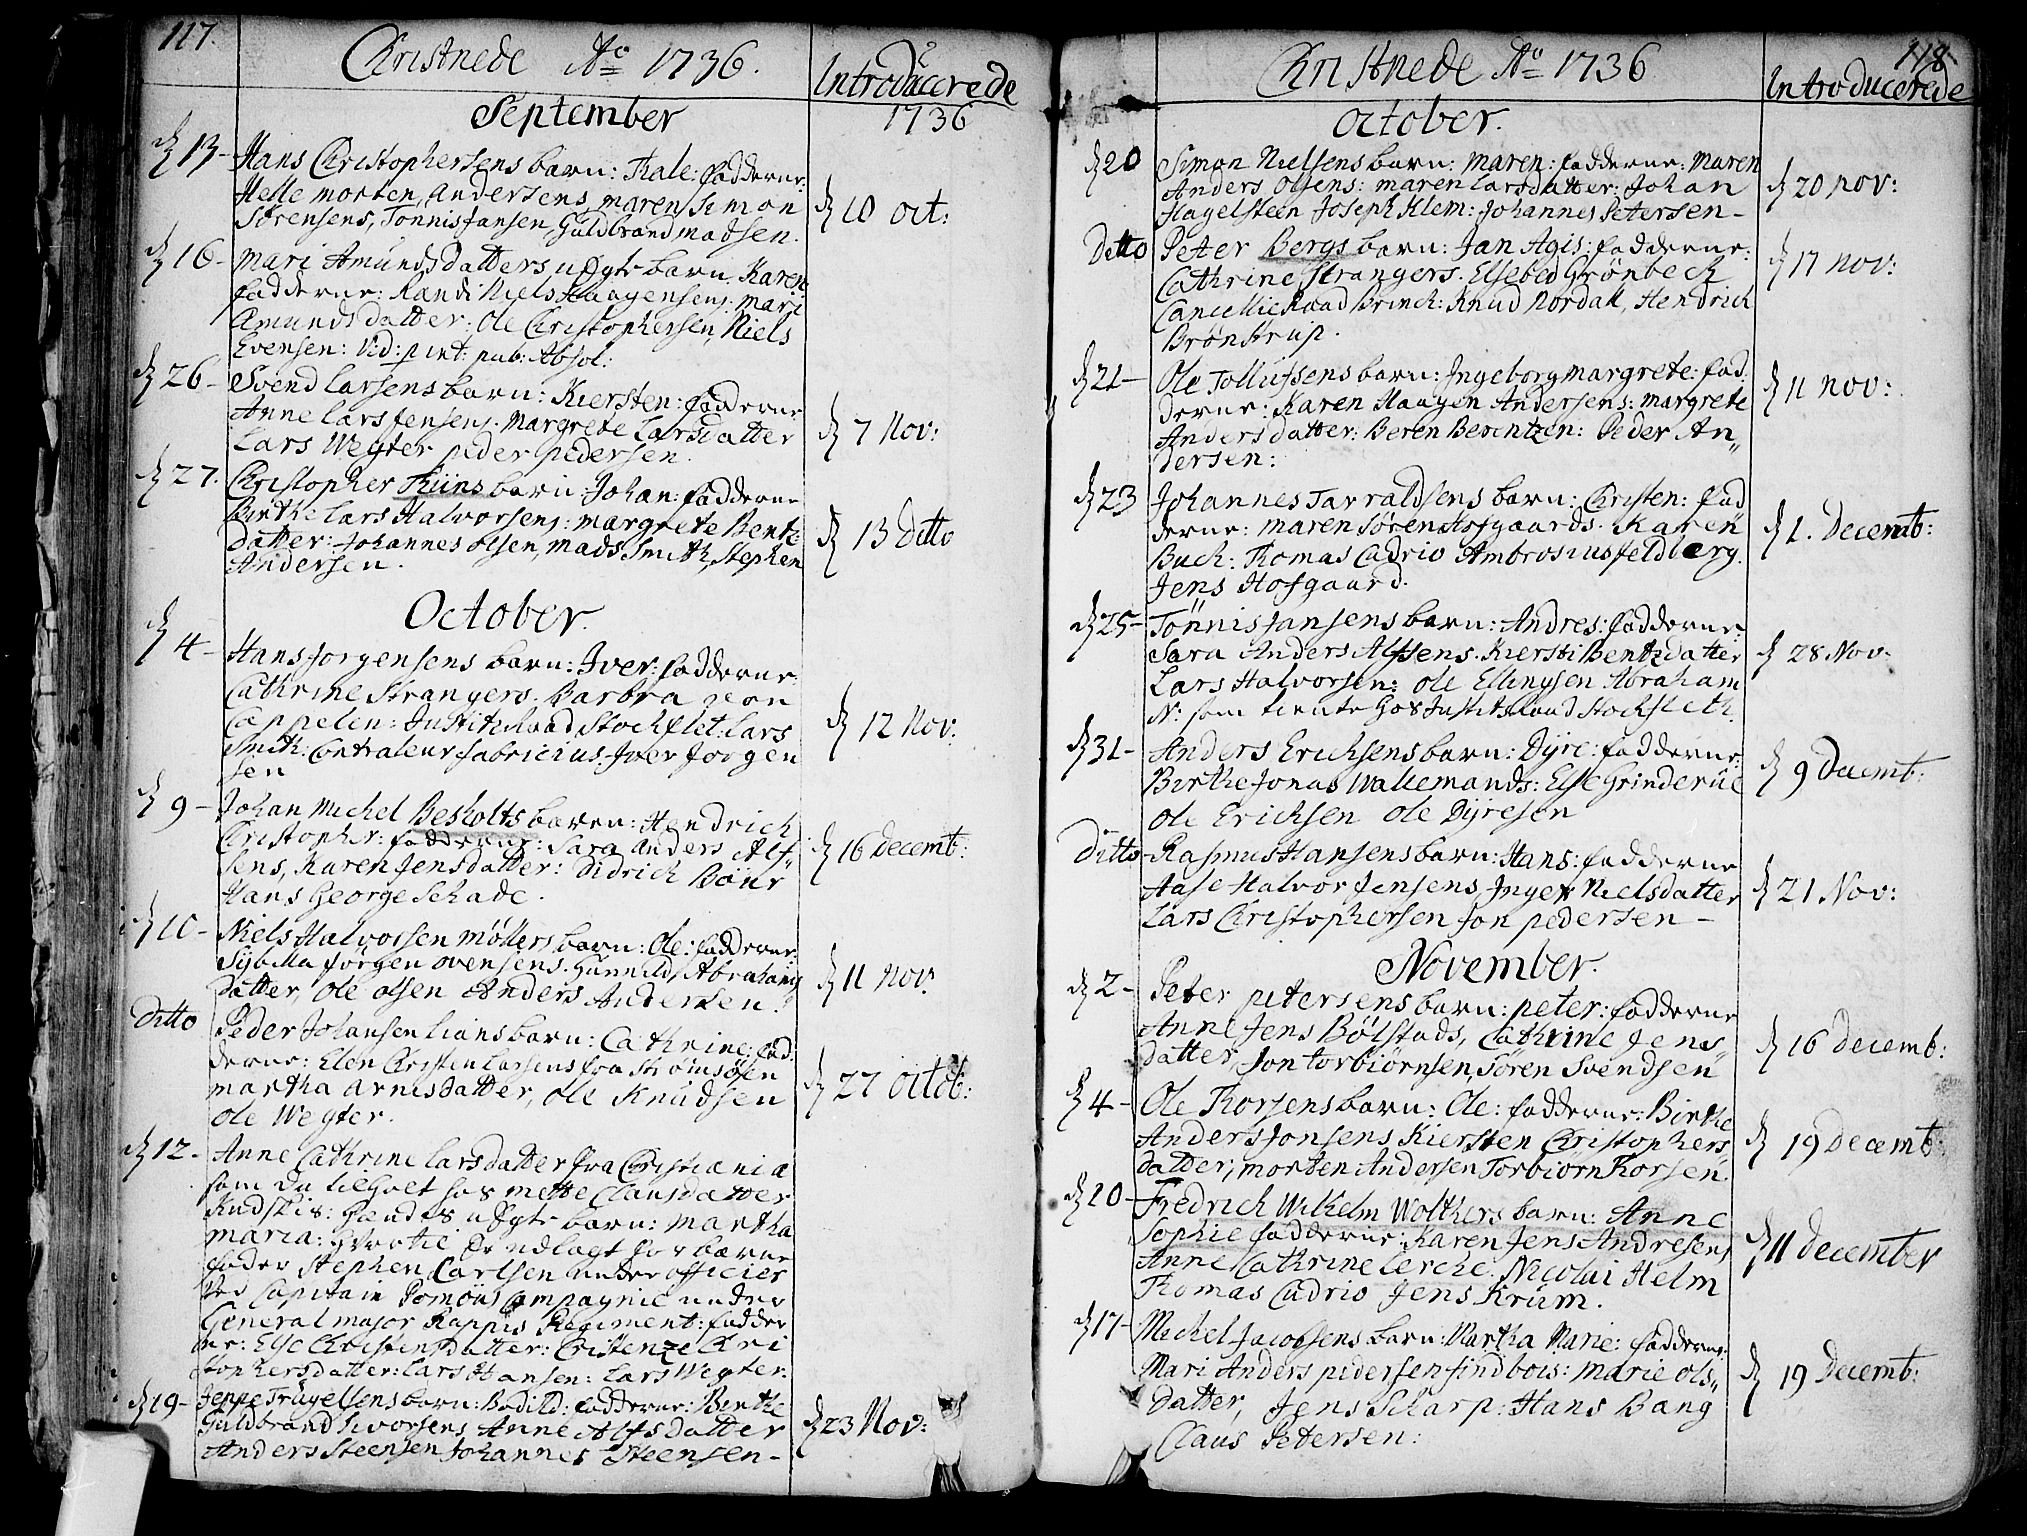 117.
Christnede Aº 1736.
Introducerede
1736
September
d 13 - Hans Christophersens barn: Thale: fadderne:
Helle Morten Andersens, maren Simon
Sørensens, Tønnis Jansen, Guldbrand Madsen.
d 10 oct:
d 16 - Mari Amunds datters uEgte barn Karen
fadderne: Randi Niels Haagensens. Mari
Amunds datter: Ole Christophersen, Niels
Evensen: Vid: pænt: pub: Absol:
d 26 - Svend Larsens barn: Kiersten: fadderne
Anne Lars Jensens. Margrete Larsdatter
Lars Wegter peder pedersen.
d 7 Nov:
d 27. Christopher Thüns barn: Johan: fadderne
Birthe Lars Halvorsens: margrete Bent:
datter: Johannes olsen, Mads Smith, Stephen
Andersen.
d 13 Ditto
October.
d 4 - Hans Jorgensens barn: Iver: fadderne:
Cathrine Strangers. Barbra von
Cappelen: Justitz Raad Stockflet: Lars
Smith: Contraleur Fabricius. Iver Jorgen
sen
d 12 Nov:
d 9 - Johan Michel Besholts barn: Hendrich
Christopher: fadderne: Sara Anders Alf-
sens, Karen Jensdatter: Didrich Bøhr
Hans George Schade.
d 16 Decemb:
d 10 - Niels Halvorsen Møllers barn: Ole: fadderne:
Sybilla Jørgen ovensens. Gunnild Abrahams
datter, Ole olsen Anders Andersen.
d 11 nov:
ditto Peder Johansen Lians barn: Cathrine: fad
derne: Elen Christen Larsens fra Strømsøen
martha arnesdatter, Ole Knudsen
ole Wegter.
d 27 Octob:
d 12 - Anne Cathrine Larsdatter fra Christiania
som da tilholt hos mette Clausdatter
Kudskis: hendes uEgte barn: Martha
maria: hvortil Er udlagt for barne
fader Stephen Carlsen under officier
Ved Capitain Compagnie under
General major Rappis Regiment: fadder
ne: Else Christensdatter: Cristenze Chri
stophersdatter: Lars Hansen: Lars Wegter:
d 19 - Jeppe Truyelsens barn: Bodild: fadderne: Birthe
Guldbrand Sivorsens, Anne Alfsdatter
Anders Steensen Johannes Steensen -
d 23 Nov:
118.
Christnede Aº 1736
Introducerede
October.
d 20 Simon Nielsens barn: Maren: fadderne: Maren
Anders Olsens: maren Larsdatter: Johan
Hagelsteen Joseph Klem: Johannes Petersen -
d 20 nov:
Ditto Peter Bergs barn: Jan Agis: fadderne:
Cathrine Strangers. Elsebed Grönbeck
Cancellie Raad Brinch: Knud Nordall, Hendrich
Brønstrup.
d 17 nov:
d 21 - Ole Tollufsens barn: Ingeborg margrete: fad
derne: Karen Haagen Andersens: margrete
Anders datter: Beren Berentzen: Peder An,,
dersen:
d 11 nov:
d 23 Johannes Tarraldsens barn: Christen: fad
derne: maren Søren Hofgaards. Karen
Buch: Thomas Cadrio Ambrosius feldberg.
Jens Hofgaard.
d 1. Decemb:
d 25 - Tönnis Jansens barn: Andres: fadderne:
Sara Anders Alfsens. Kiersti Bentzdatter
Lars Halvorsen: ole Ellingsen Abraham
N: som tiente hos Justitsraad Stochfleth.
d 28 Nov.
d 31 - Anders Erichsens barn: Dÿre: fadderne:
Birthe Jonas Wallemands: Else Grinderue
Ole Erichsen Ole Dÿresen
d 9 Decemb:
Ditto - Rasmus Hansens barn: Hans: fadderne
Aase Halvor Jensens, Inger Nielsdatter
Lars Christophersen Jon pedersen -
d 21 Nov:
November.
d 2 - Peter petersens barn: peter: fadderne
Anne Jens Bølstads, Cathrine Jens,,
datter, Jon torbiørnsen, Sören Svendsen
d 16 decemb:
d 4 - Ole Thorsens barn: Ole: fadderne: Birthe
Anders Jonsens Kiersten Christophers
datter; morten Andersen Torbiørn Thorsen.
d 19 decemb:
d 10 - Fredrich Wilhelm Wolthers barn: Anne
Sophie fadderne: Karen Jens Andresens
Anne Cathrine Lerche. Nicolai Helm
Thomas Cadrio Jens Krum.
d 11 december
d 17 - Michel Jacobsens barn: Martha Marie: fadderne:
Mari Anders pedersen findbois: Marie ols,,
datter, Jens Scharp: Hans Bang
Claus Petersen:
d 19 Decemb: